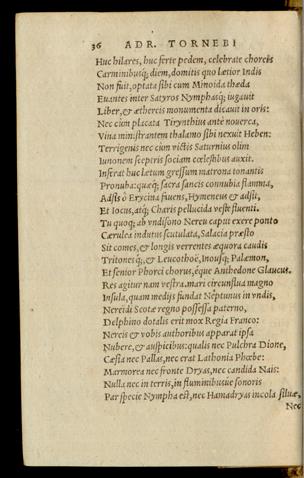 36 ADR. TORNEBI
Huc hilares, huc ferte pedem, celebrate choreis
Carminibusq́; diem, domitis quo lætior Indis
Non fuit, optata sibi cum Minoida thæda
Euantes inter Satyros Nymphasq́; iugauit
Liber, & æthereis monumenta dicauit in oris:
Nec cùm placata Tirynthius antè nouerca,
Vina ministrantem thalamo sibi nexuit Heben:
Terrigenis nec cùm victis Saturnius olim
Iunonem sceptris sociam cœlestibus auxit.
Inserat huc lætum gressum matrona tonantis
Pronuba: quæq́; sacra sancis connubia flamma,
Adsis ô Erycina fiuens, Hymeneus & adsit,
Et Iocus, atq́; Charis pellucida veste fluenti.
Tu quoq́; ab vndisono Nereu caput exere ponto
Cærulea indutus scutulata, Salacia præsto
Sit comes, & longis verrentes æquora caudis
Tritonesq́;, & Leucothoë, Inousq́; Palæmon,
Et senior Phorci chorus, éque Anthedone Glaucus.
Res agitur nam vestra. mari circunflua magno
Insula, quam medijs fundat Neptunus in vndis,
Nereidi Scotæ regno possessa paterno,
Delphino dotalis erit mox Regia Franco:
Nereis & vobis authoribus apparat ipsa
Nubere, & auspicibus: qualis nec Pulchra Dione,
Cæsia nec Pallas, nec erat Lathonia Phœbe:
Marmorea nec fronte Dryas, nec candida Nais:
Nulla nec in terris, in fluminibusue sonoris
Par specie Nympha est, nec Hamadryas incola siluæ,
Nec